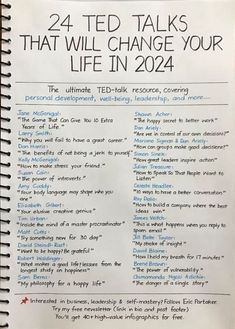 24 TED TALKS
THAT WILL CHANGE YOUR
LIFE IN 2024
The ultimate TED-talk resource, covering
personal development, well-being, leadership, and more...
Jane McGonigal:
"The Game That Can Give You 10 Extra
Years of Life."
Larry Smith:
"Why you will fail to have a great career."
Dan Harris:
"The benefits of not being a jerk to yourself"
Kelly McGonigal:
"How to make stress your friend."
Susan Cain:
"The power of introverts."
Amy Cuddy:
"Your body language may shape who you
are."
Elizabeth Gilbert:
"Your elusive creative genius"
Tim Urban:
"Inside the mind of a master procrastinator"
Matt Cutts:
"Try something new for 30 day"
David Steindl-Rast:
"Want to be happy? Be grateful"
Robert Waldinger:
"What makes a good life? Lessons from the
longest study on happiness"
Sam Berns:
"My philosophy for a happy life"
Shawn Achor:
"The happy secret to better work"
Dan Ariely:
"Are we in control of our own decisions?"
"How can groups make good decisions?"
Simon Sinek:
"How great leaders inspire action"
Julian Treasure:
"How to Speak So That People Want to
Listen"
Celeste Headlee:
"10 ways to have a better conversation"
Ray Dalio:
"How to build a company where the best
ideas win"
James Veitch:
"This is what happens when you reply to
spam email"
Jill Bolte Taylor:
"My stroke of insight"
David Blaine:
"How I held my breath for 17 minutes"
Brené Brown:
"The power of vulnerability"
Chimamanda Ngozi Adichie:
"The danger of a single story"
Interested in business, leadership & self-mastery? Follow Eric Partaker.
Try my free newsletter (link in bio and post footer)
You'll get 40+ high-value infographics for free.